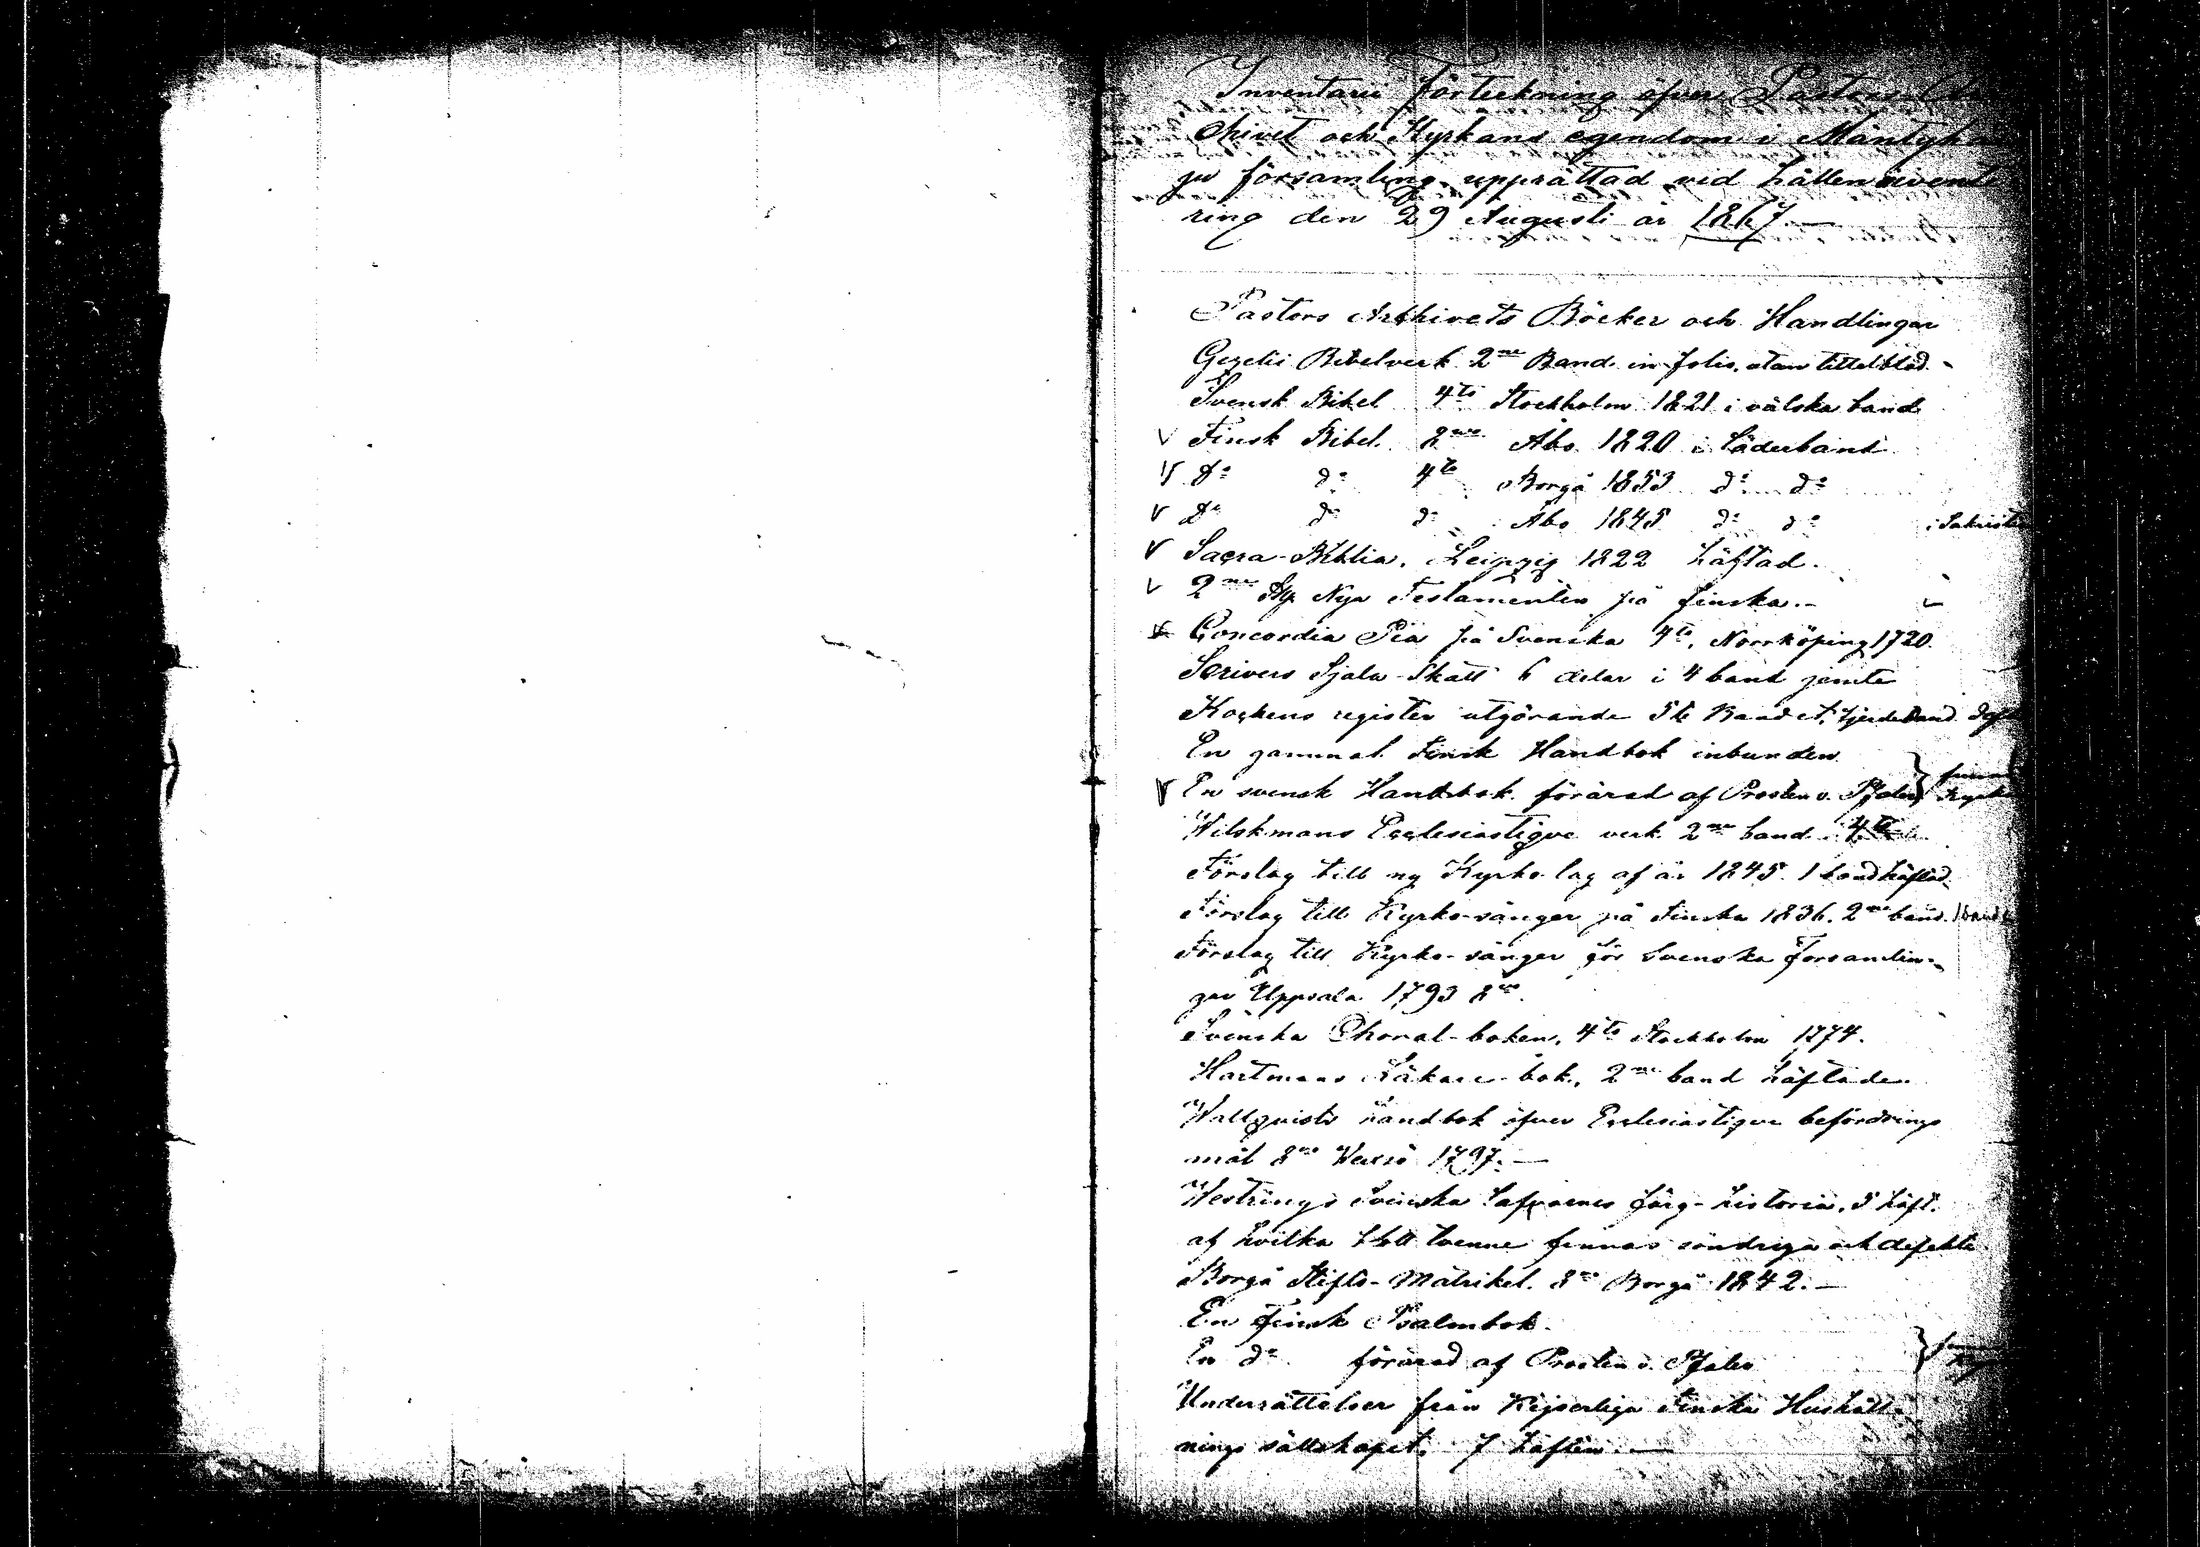 Inventarii Förteckning öfver Pastors Ar
chivet och Kyrkans egendom i Mäntyha
ju församling upprättad vid hållen invent
ring den 29 Augusti år 1867.—
Pastors Archivets Böcker och Handlingar
Gezelii Bibelverk 2ne Band in folio, utan tittelblad.
Svensk Bibel 4to Stockholm 1821 i välska band
V Finsk Bibel 8vo Åbo 1820 i Läderband
V Do do 4to Borgå 1853 do do
V Do do do Åbo 1845 do do i Sakristi
V Sacra Biblia. Leipzig 1822 häftad.
V 2ne Nya Testamenten på finska.—
V Concordia Pia på Svenska 4to, Norrköping 1720.
Scrivers Sjala-Skatt 6 delar i 4 band jemte
Kockens register utgörande 5te Bandet, fjerde band
En gammal Finsk Handbok inbunden
V En svensk Handbok förärad af Prosten v. Pfaler
Wilskmans Ecclesiastique verk 2ne band 4to
Förslag till ny Kyrko lag af år 1845. 1 band häftad
Förslag till Kyrko-sånger på Finska 1836. 2ne band. 1 band
Förslag till Kyrko-sånger för Svenska Församlin-
gar Uppsala 1793 8vo.
Svenska Choral-boken, 4to Stockholm 1774.
Hartmans Läkare-bok, 2ne band häftade.
Wallquists handbok öfver Ecclesiastique befordrings
mål 8vo Wexiö 1797.—
Westrings Svenska Lafvarnes färg-historia, 5 häft.
af hvilka tvenne finnas söndriga och defekta
Borgå Stifts-Matrikel. 8vo Borgå 1842.—
En Finsk Psalmbok.
En do förärad af Prosten v. Pfaler
Underrättelser från Kejserliga Finska Hushåll-
nings sällskapet. 7 häften.—